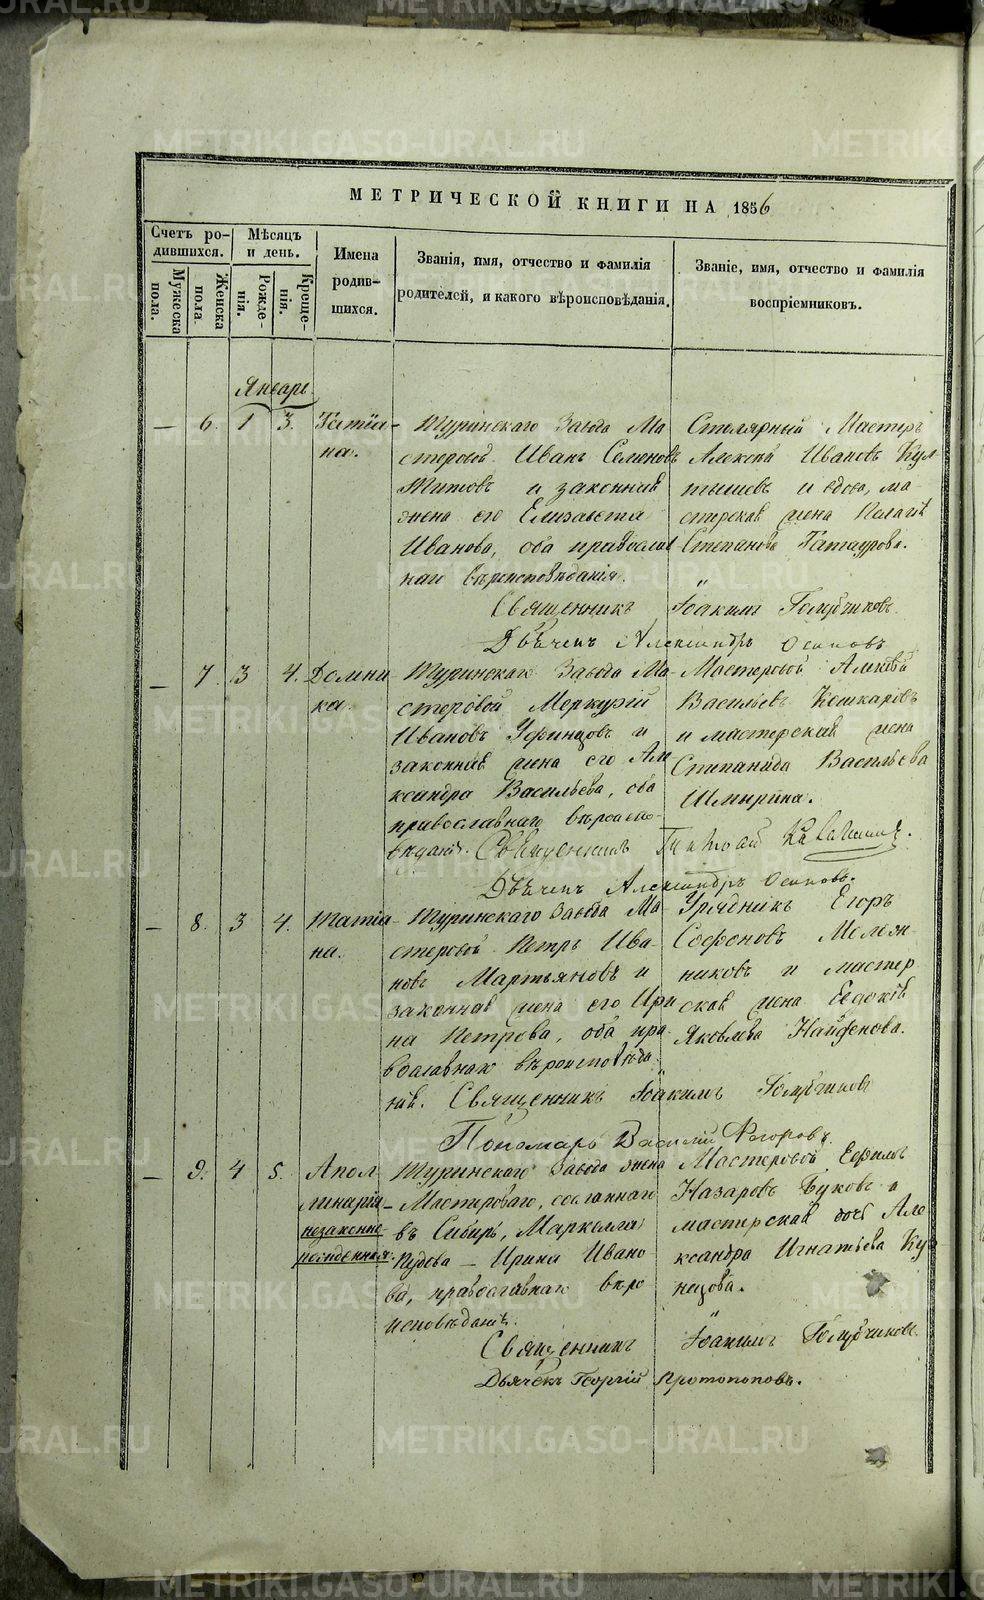 МЕТРИЧЕСКОЙ КНИГИ НА 1856
Счетъ ро-
дившихся.
Мужеска
пола.
Женска
пола
Мѣсяцъ
и день.
Рожде-
нія.
Креще-
нія.
Имена
родив-
шихся.
Званія, имя, отчество и фамилія
родителей, и какого вѣроисповѣданія.
Званіе, имя, отчество и фамилія
воспріемниковъ.
Январь
— 6. 1 3. Устиа-
на.
Туринскаго Завода Ма
стеровой Иванъ Семеновъ
Титовъ и законная
жена его Елизавета
Иванова, оба православ
наго вѣроисповѣданія.
Столярный Мастеръ
Алексѣй Ивановъ Кул
тышевъ и вдова, ма-
стерская жена Палагѣя
Степанова Татаурова.
Священникъ Іоакимъ Голубчиковъ.
Дьячекъ Александръ Осиповъ
— 7. 3 4. Домни
ка.
Туринскаго Завода Ма-
стеровой Меркурій
Ивановъ Уфинцовъ и
законная жена его Але
ксандра Васильева, оба
православнаго вѣроиспо-
вѣданія.
Мастеровой
Васильевъ Кошкаровъ
и мастерская жена
Степанида Васильева
Шмырина.
Священникъ
Дьячекъ Александръ Осиповъ.
— 8. 3 4. Татіа-
на.
Туринскаго Завода Ма
стеровой Петръ Ива-
новъ Мартьяновъ и
законная жена его Ири
на Петрова, оба пра-
вославнаго вѣроисповѣда-
нія.
Урядникъ Егоръ
Софоновъ Мележ-
никовъ и мастер
ская жена Евдокія
Яковлева Найфенова.
Священникъ Іоакимъ Голубчиковъ
Пономарь Василій Флоровъ.
— 9. 4 5. Апол
линарія-
незаконно-
рожденная.
Туринскаго Завода жена
Мастероваго, сосланнаго
въ Сибирь, Маркелла
Пудова — Ирина Ивано
ва, православнаго вѣро
исповѣданія.
Мастеровой Ефимъ
Назаровъ Буковъ и
мастерская дочь Але
ксандра Игнатьева Куз
нецова.
Священникъ Іоакимъ Голубчиковъ.
Дьячекъ Георгій Протопоповъ.
METRIKI.GASO-URAL.RU